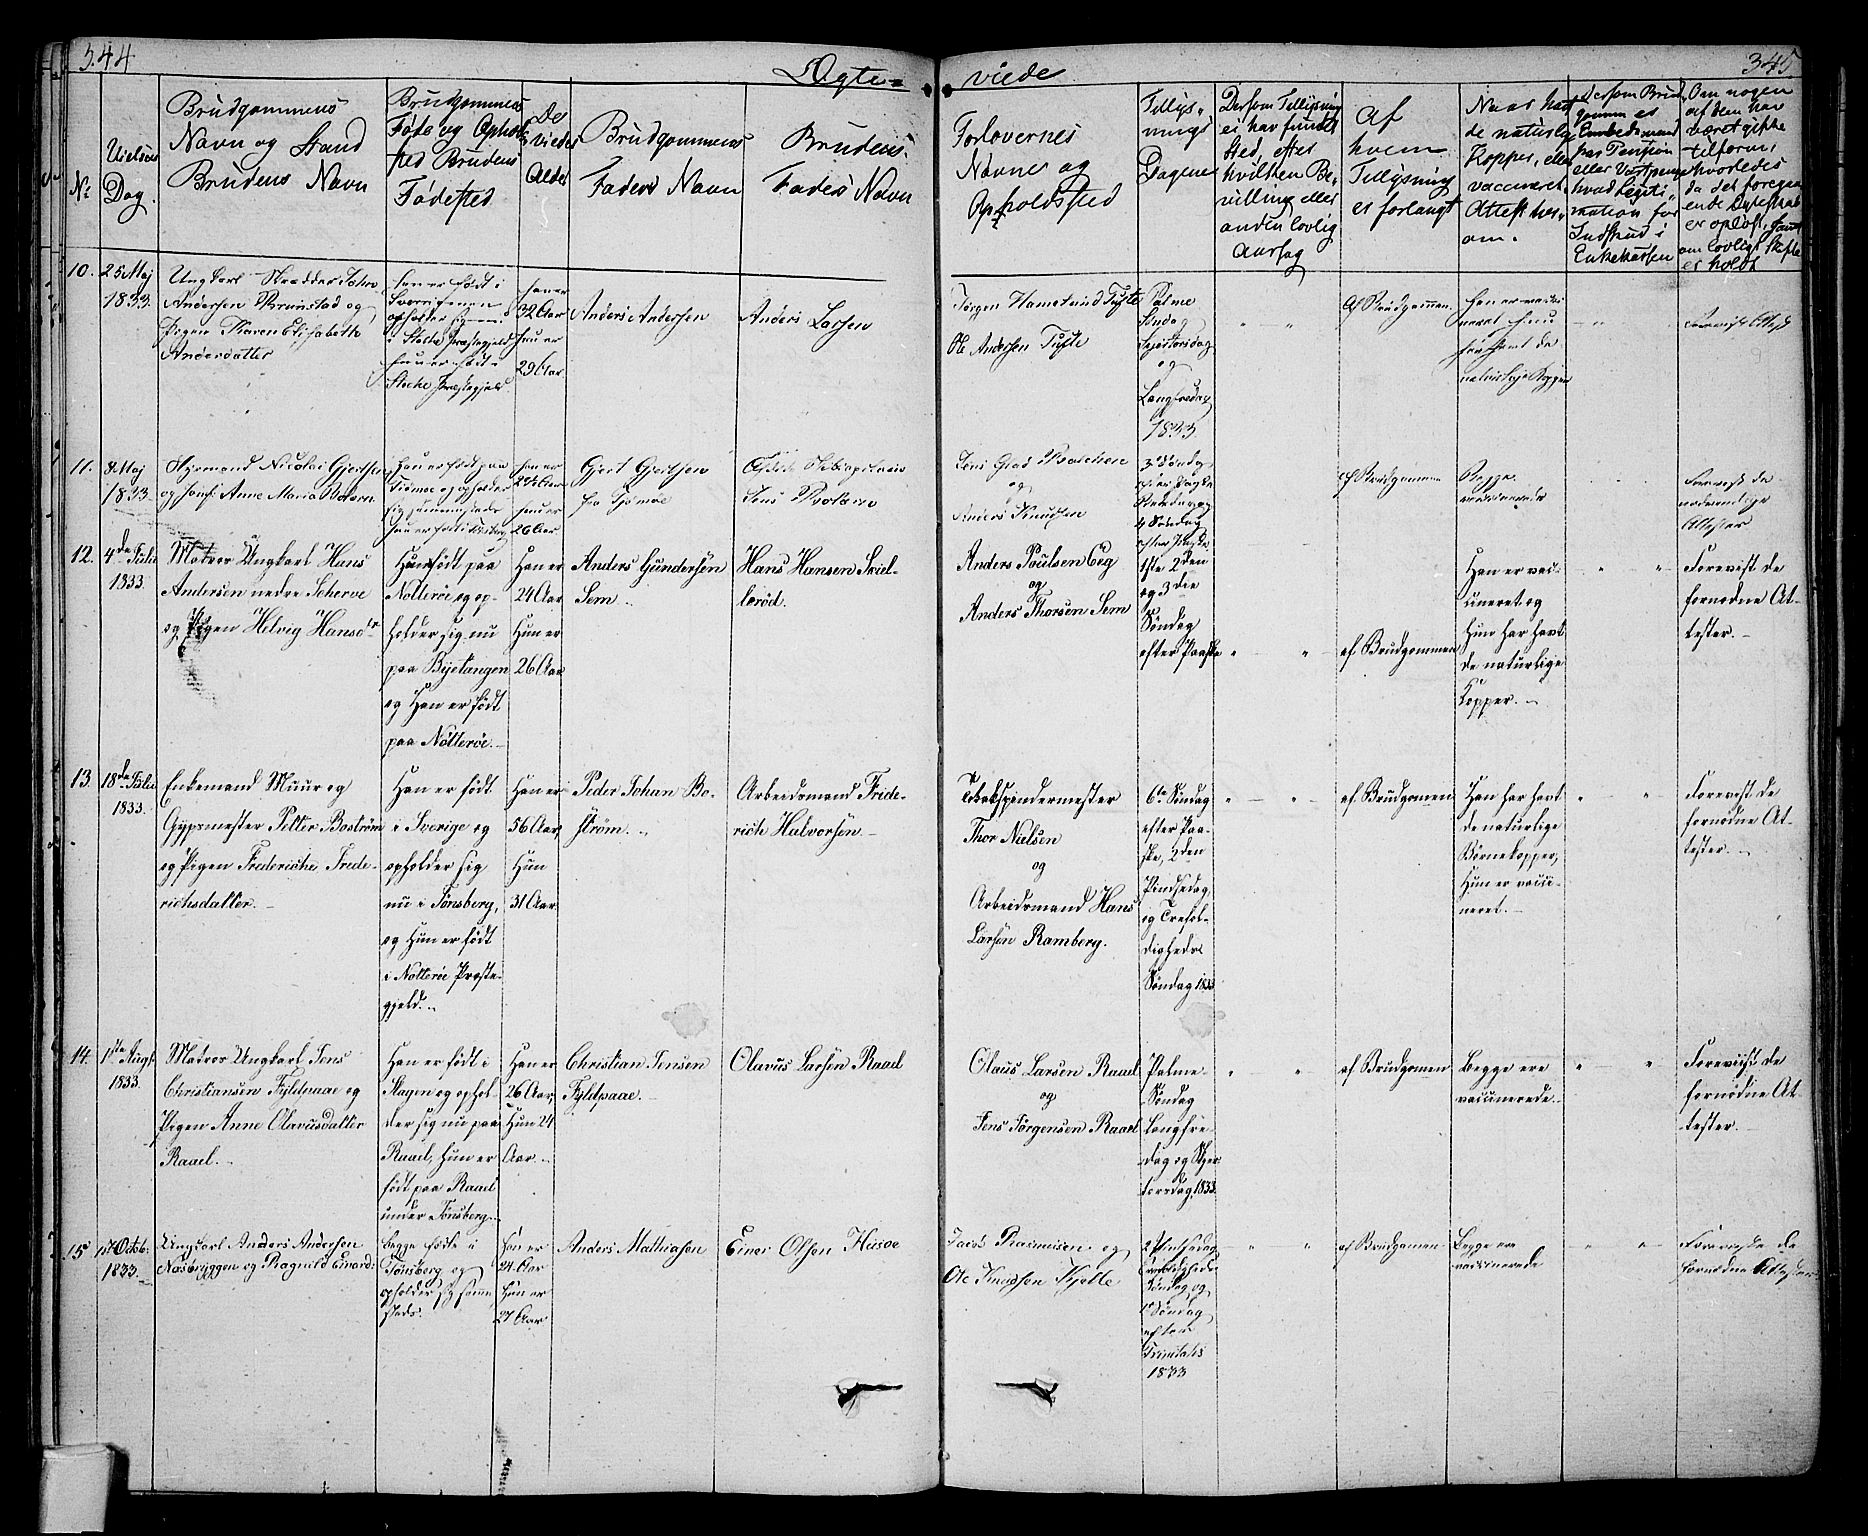 344
Ægte-
viede
345
No
Vielses
Dag.
Brudgommens
Navn og Stand
Brudens Navn
Brudgommens
Føde og Ophold
sted Brudens
Fødested
De
Viedes
Alder
Brudgommens
Faders Navn
Brudens
Faders Navn
Forlovernes
Navne og
Opholdsted
Tillys-
nings
Dagene
Dersom Tillysning
ei har fundet
sted, efter
hvilken Be-
villing eller
anden lovlig
Aarsag
Af
hvem
Tillysning
er forlangt
Naar havt
de naturlig
Kopper, eller
vaccineret
Attest her-
om.
Dersom Brud
gommen er
Embedsmand
hvad Legiti-
mation for
Indskud i
Enkekassen
Om nogen
af dem har
været gifte
tilforn,
hvorledes
da det foregaa
ende Ægteskab
er opløst, samt
om lovligt Skifte
er holdt
10.
25 Maj
1833.
Ungkarl Skrædder John
Andersen Brunstad og
Pigen Maren Elisabeth
Andersdatter
han er født i
opholder sig
i Stokke Præstegjeld
hun er født i
Stokke Præstegjeld.
han er
32 Aar
hun er
29 Aar
Anders Andersen
Anders Larsen
Jørgen Hamslund Tufte
Ole Andersen Tufte
Palme
Søndag
Skjærtorsdag
og
Langfredag
1833.
" "
Af Brudgommen
han er vacci
neret hun
har havt de
naturlige Kopper
Forevist Attest
11.
8. Maj
1833
Styrmand Nicolai Gjertsen
og Jomf: Anne Maria Bolærn
han er født paa
Tjømøe og opholder
sig sammesteds
hun er født i Tønsberg
han er
hun er
26 Aar
Gjert Gjertsen
fra Tjømøe
Jens Bolærn
og
Anders Knudsen
3de Søndag
4 Søndag
af Brudgommen
Begge
vaccinerede
Forevist de
nødvendige
Attester
12.
4de Julii
1833
Matros Ungkarl Hans
Andersen nedre Scherve
og Pigen Helvig Hansdr
Han født paa
Nøtterøe og op-
holder sig nu
paa Bijetangen
og Hun er født
paa Nøtterøe.
Han er
24 Aar
Hun er
26 Aar
Anders Gundersen
Sem.
Hans Hansen Skiel-
lerød.
Anders Poulsen Eeg
og
Anders Thorsen Sem
1ste 2den
og 3die
Søndag
efter Paaske
" "
af Brudgommen
Han er vac-
cineret og
Hun har havt
de naturlige
Kopper.
" "
Forevist de
fornødne At-
tester.
13.
18de Julii
1833.
Enkemand Muur og
Gypsmester Petter Boström
og Pigen Frederiche Frede-
richsdatter.
Han er født
i Sverige og
opholder sig
nu i Tønsberg,
og Hun er født
i Nøtterøe Præste-
gjeld.
Han er
56 Aar,
Hun
31 Aar.
Peder Johan Bo-
ström.
Arbeidsmand Fride-
rich Halvorsen
Tobakspindermester
Thor Nielsen
og
Arbeidsmand Hans
Larsen Ramberg.
6te Søndag
efter Paa-
ske, 2den
Pindsedag
og Trefol-
digheds
Søndag 1833
" "
af Brudgommen
Han har havt
de naturlige
Børnekopper,
Hun er vacci-
neret.
" "
Forevist de
fornødne At-
tester.
14.
1ste Augst
1833.
Matros Ungkarl Jens
Christiansen Fyldpaae og
Pigen Anne Olavusdatter
Raael.
Han er født i
Slagen og ophol-
der sig nu paa
Raael, hun er
født paa Raael
under Tønsberg.
Han er
26 Aar,
Hun 24
Aar.
Christian Jensen
Fyldpaae.
Olavus Larsen Raael
Olaus Larsen Raael
og
Jens Jørgensen Raael
Palme-
Søndag
Langfre-
dag og Skjer-
torsdag, 1833.
" "
af Brudgommen
Begge ere
vaccinerede.
" "
Foreviist de
fornødne At-
tester.
15
1st Octob:
1833.
Ungkarl Anders Andersen
Næsbryggen og Ragnild Einard:
begge fødte i
Tønsberg og
opholder sig samme
steds.
han er
24 Aar
hun er
27 Aar
Anders Mathiasen
Einar Olsen Husøe
Jacob Rasmussen og
Ole Knudsen Kjelle
2 Pintsedag
Søndag og
1 Søndag
efter
Trinitatis
1833
" "
af Brudgommen
Begge ere
vaccinerede
" "
Foreviste de
fornødne Attester